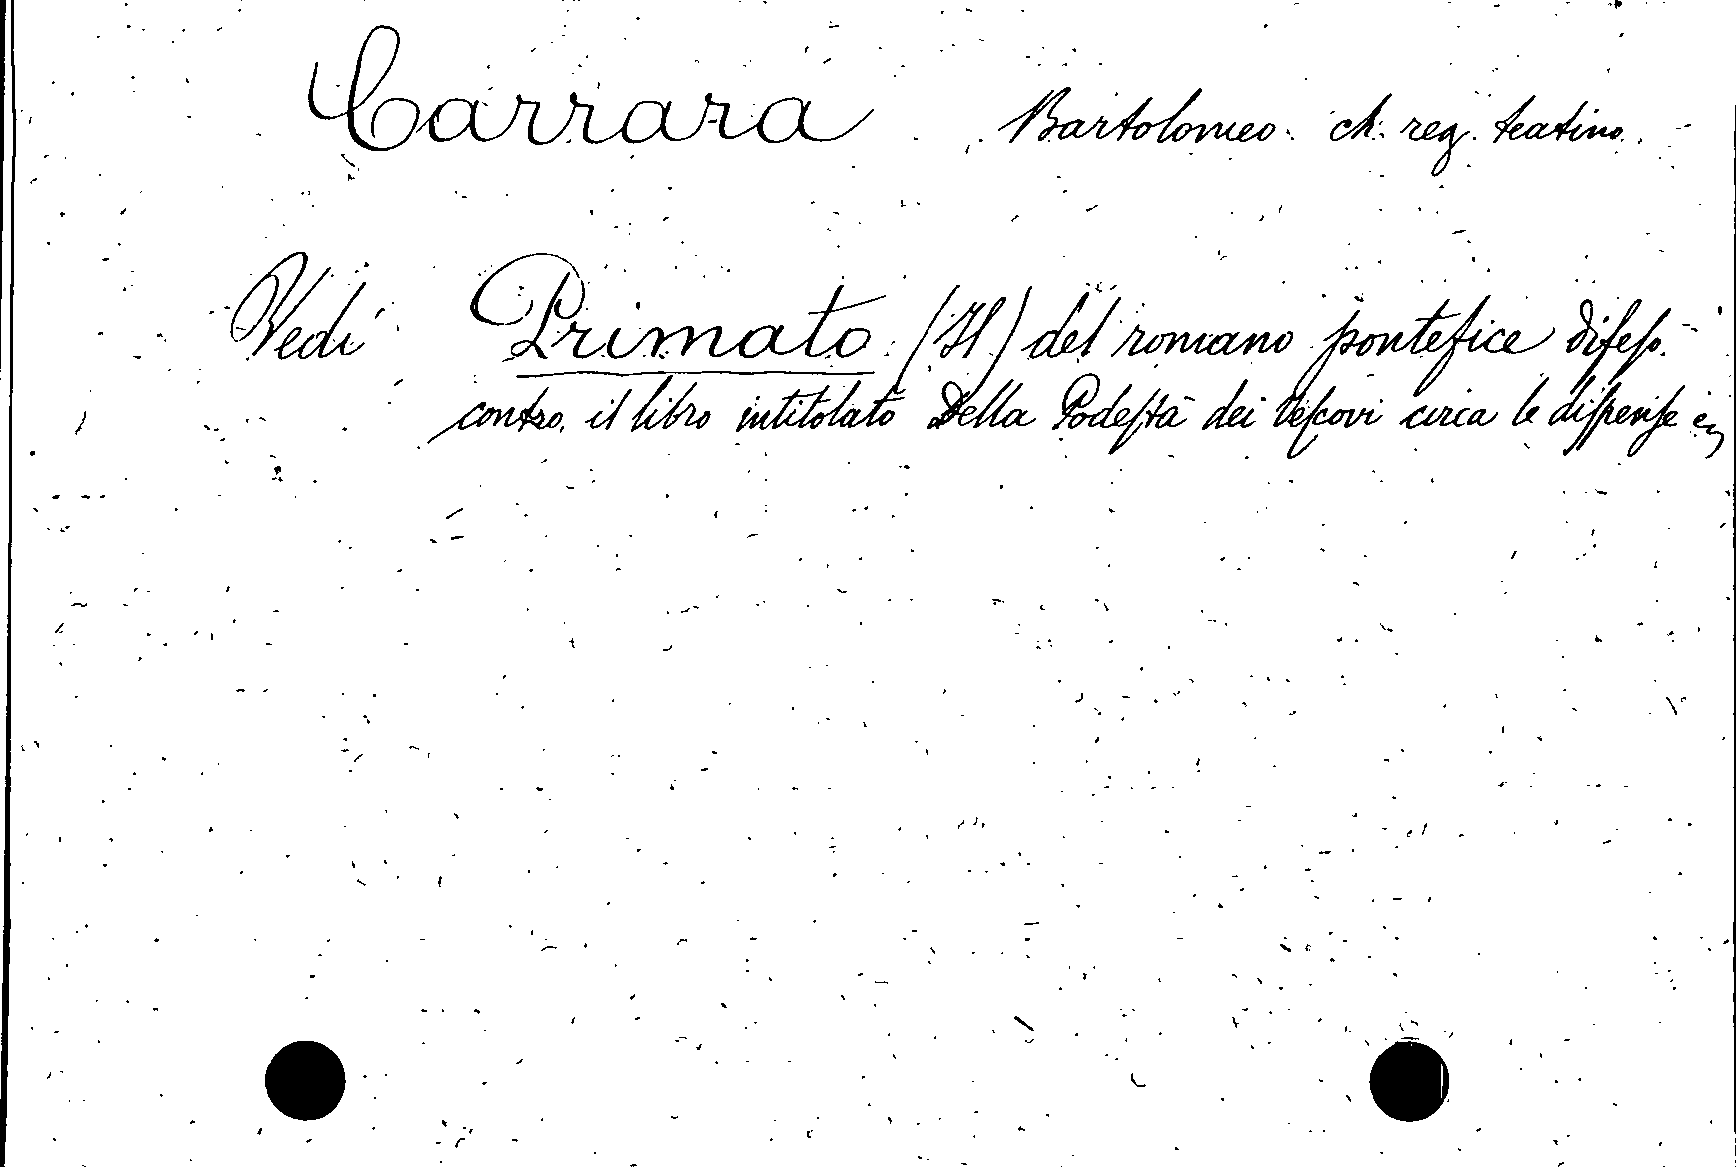 Carrara Bartolomeo. ch. reg. teatino.
Vedi Primato (Il) del romano pontefice difeso
contro il libro intitolato Della Podestà dei Vescovi circa le dispense